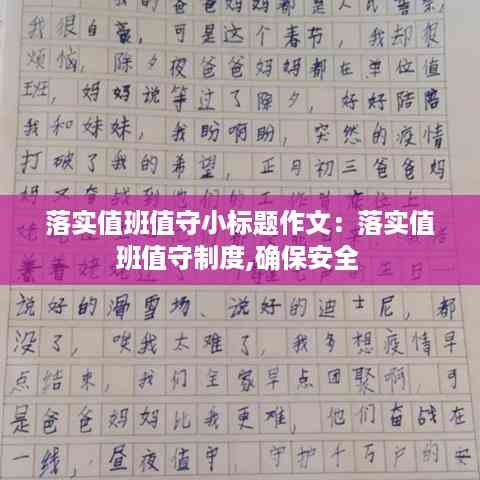 爸爸妈妈都是人民
我很自豪，可是这个春节，我却很
烦恼，除夕夜爸爸妈妈都在单位值
班，妈妈说等过了除夕，好好陪陪
我和妹妹，我盼啊盼，突然的疫情
打破了我的希望，正月初三爸爸妈
落实值班值守小标题作文：落实值
班值守制度,确保安全
说好的滑雪场、说好的迪士尼，都
没了，唉我太难了，我多想疫情早
点结束，我们全家早点团聚啊，可
是爸爸妈妈比我更难，他们奋战在
一线，昼夜值守，守护千万户的安